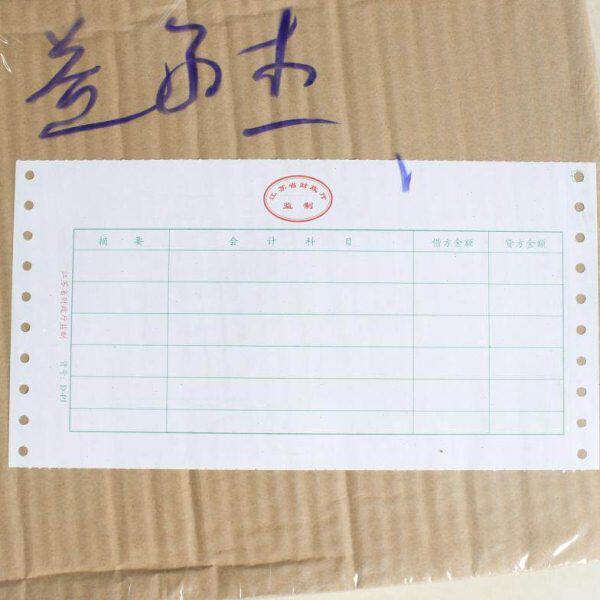 江苏省财政厅
监 制
摘 要 会 计 科 目 借方金额 贷方金额
江苏省财政厅监制 货号: